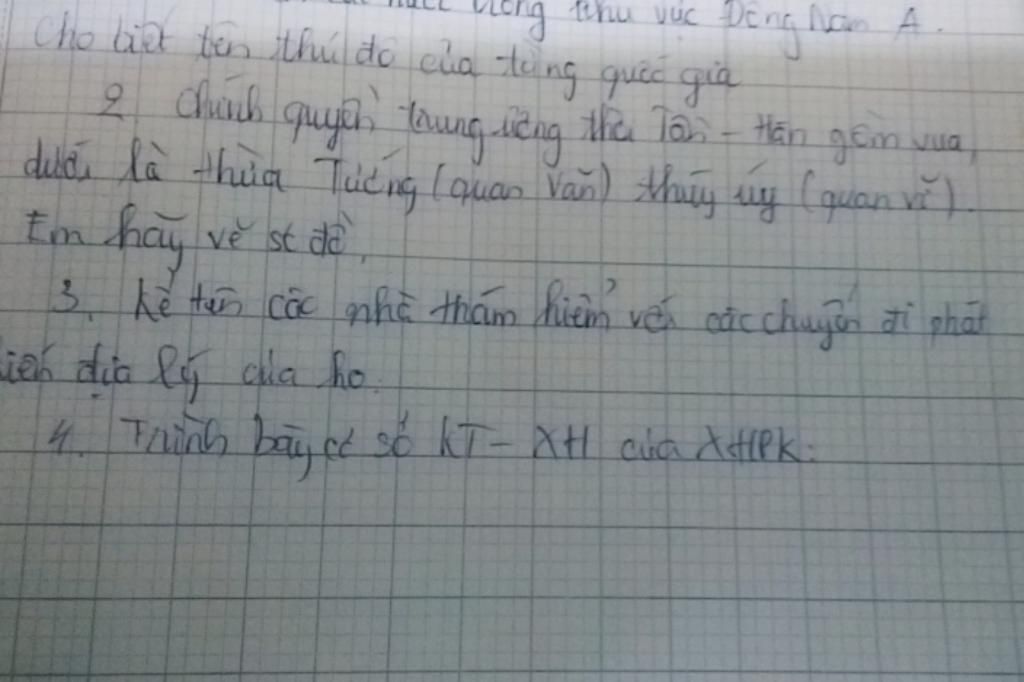 nước trong khu vực Đông Nam Á.
Cho biết tên thủ đô của từng quốc gia
2 Chính quyền trung ương thời Tần - Hán gồm vua,
dưới là thừa Tướng (quan văn) thúy úy (quan võ).
Em hãy vẽ sơ đồ,
3. Kể tên các nhà thám hiểm với các chuyến đi phát
kiến địa lý của họ.
4. Trình bày cơ sở KT - XH của XHPK: